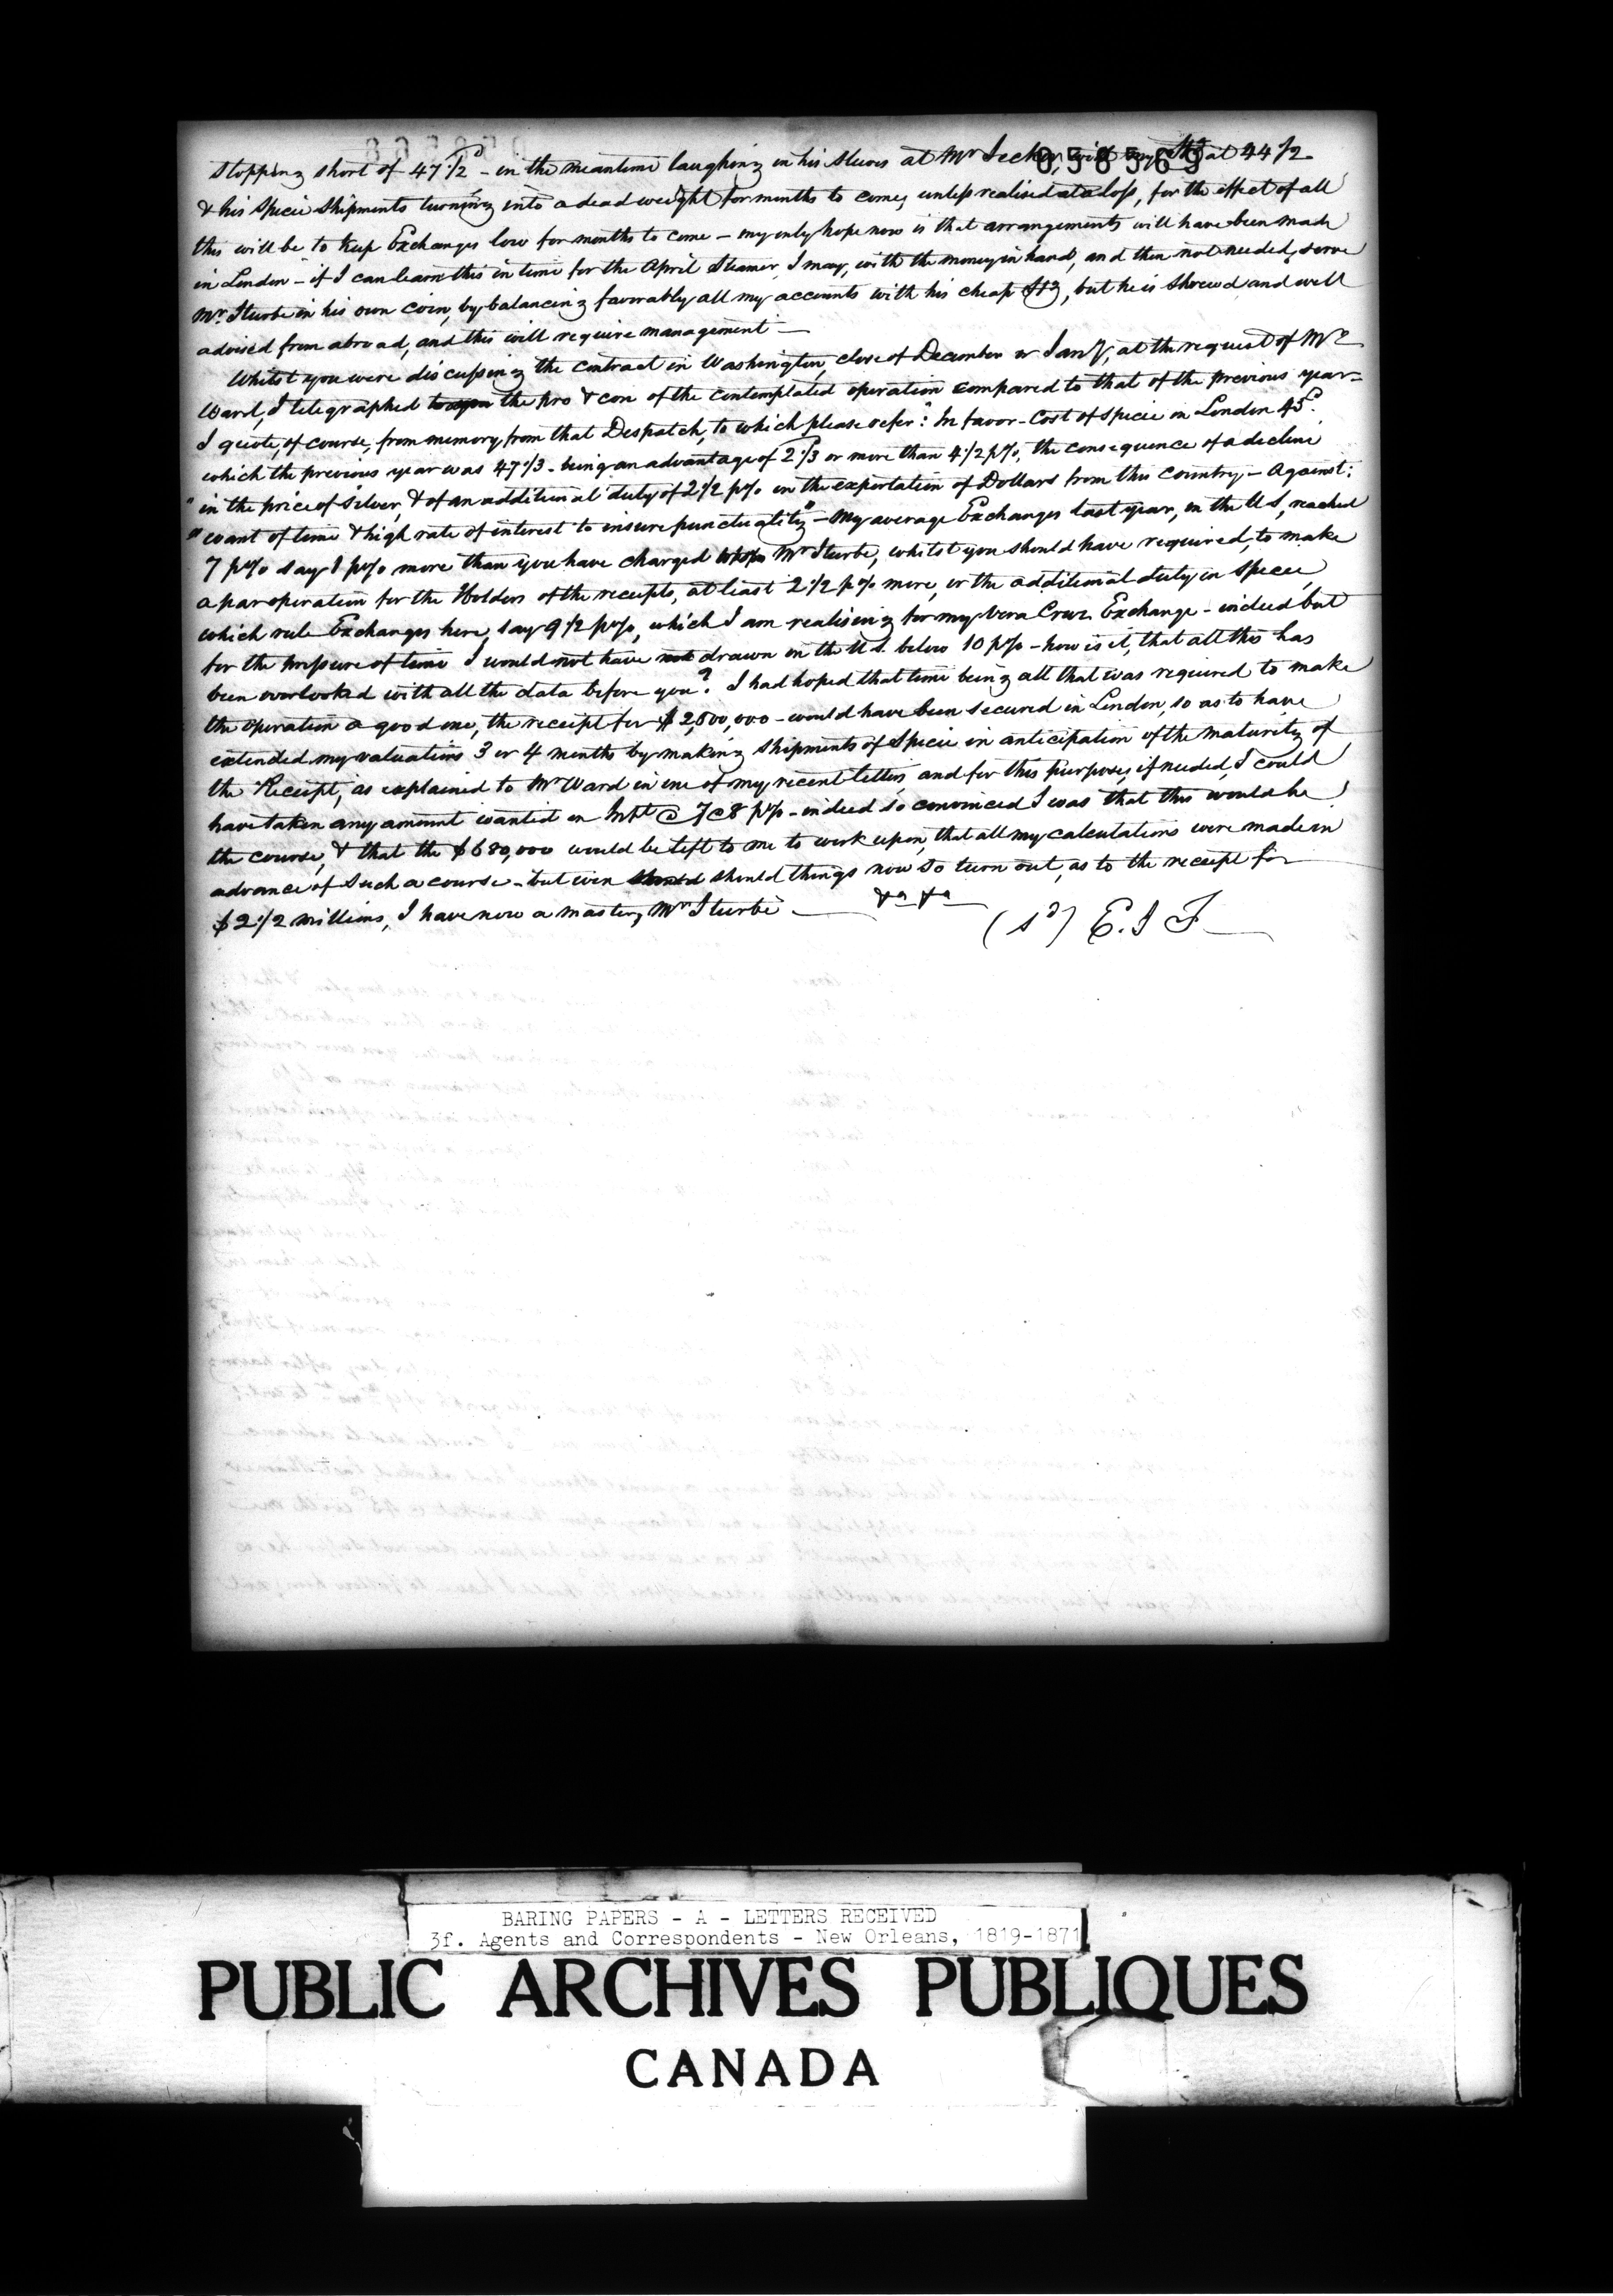 058569
stopping short of 47 1/2d - in the meantime laughing in his sleeves at Mr Jecker, with Stg at 44 1/2
& his specie shipments turning into a dead weight for months to come, unless realised at a loss, for the effect of all
this will be to keep Exchanges low for months to come - my only hope now is that arrangements will have been made
in London - if I can learn this in time for the April Steamer, I may, with the money in hand, and then not needed, serve
Mr. Iturbe in his own coin, by balancing favorably all my accounts with his cheap Stg, but he is shrewd and well
advised from abroad, and this will require management —
Whilst you were discussing the contract in Washington, close of December or Jany, at the request of Mr
Ward, I telegraphed to you the pro & con of the contemplated operation compared to that of the previous year -
I quote, of course, from memory, from that Despatch, to which please refer: "In favor - Cost of specie in London 45d.
which the previous year was 47 1/3 - being an advantage of 2 1/3 or more than 4 1/2 p%, the consequence of a decline
" in the price of silver, & of an additional duty of 2 1/2 p% on the exportation of Dollars from this country - Against:
" want of time & high rate of interest to insure punctuality" - My average Exchanges last year, on the U S, reached
7 p% say 1 p% more than you have charged Mr Iturbe, whilst you should have required, to make
a par operation for the Holders of the receipts, at least 2 1/2 p% more, or the additional duty on specie,
which rule Exchanges here, say 9 1/2 p%, which I am realising for my Vera Cruz Exchange - indeed but
for the pressure of time I would not have not drawn on the U.S. below 10 p% - how is it, that all this has
been overlooked with all the data before you? I had hoped that time being all that was required to make
the operation a good one, the receipt for $2,500,000 - would have been secured in London, so as to have
extended my valuations 3 or 4 months by making shipments of specie in anticipation of the maturity of
the Receipt, as explained to Mr Ward in one of my recent letters, and for this purpose, if needed, I could
have taken any amount wanted on Intst @ 7 @ 8 p% - indeed so convinced I was that this would be
the course, & that the $680,000 would be left to me to work upon, that all my calculations were made in
advance of such a course - but even should should things now so turn out, as to the receipt for
$2 1/2 millions, I have now a master, Mr Iturbe — &a &a
(sd) E. J F
BARING PAPERS - A - LETTERS RECEIVED
3f. Agents and Correspondents - New Orleans, 1819-1871
PUBLIC ARCHIVES PUBLIQUES
CANADA